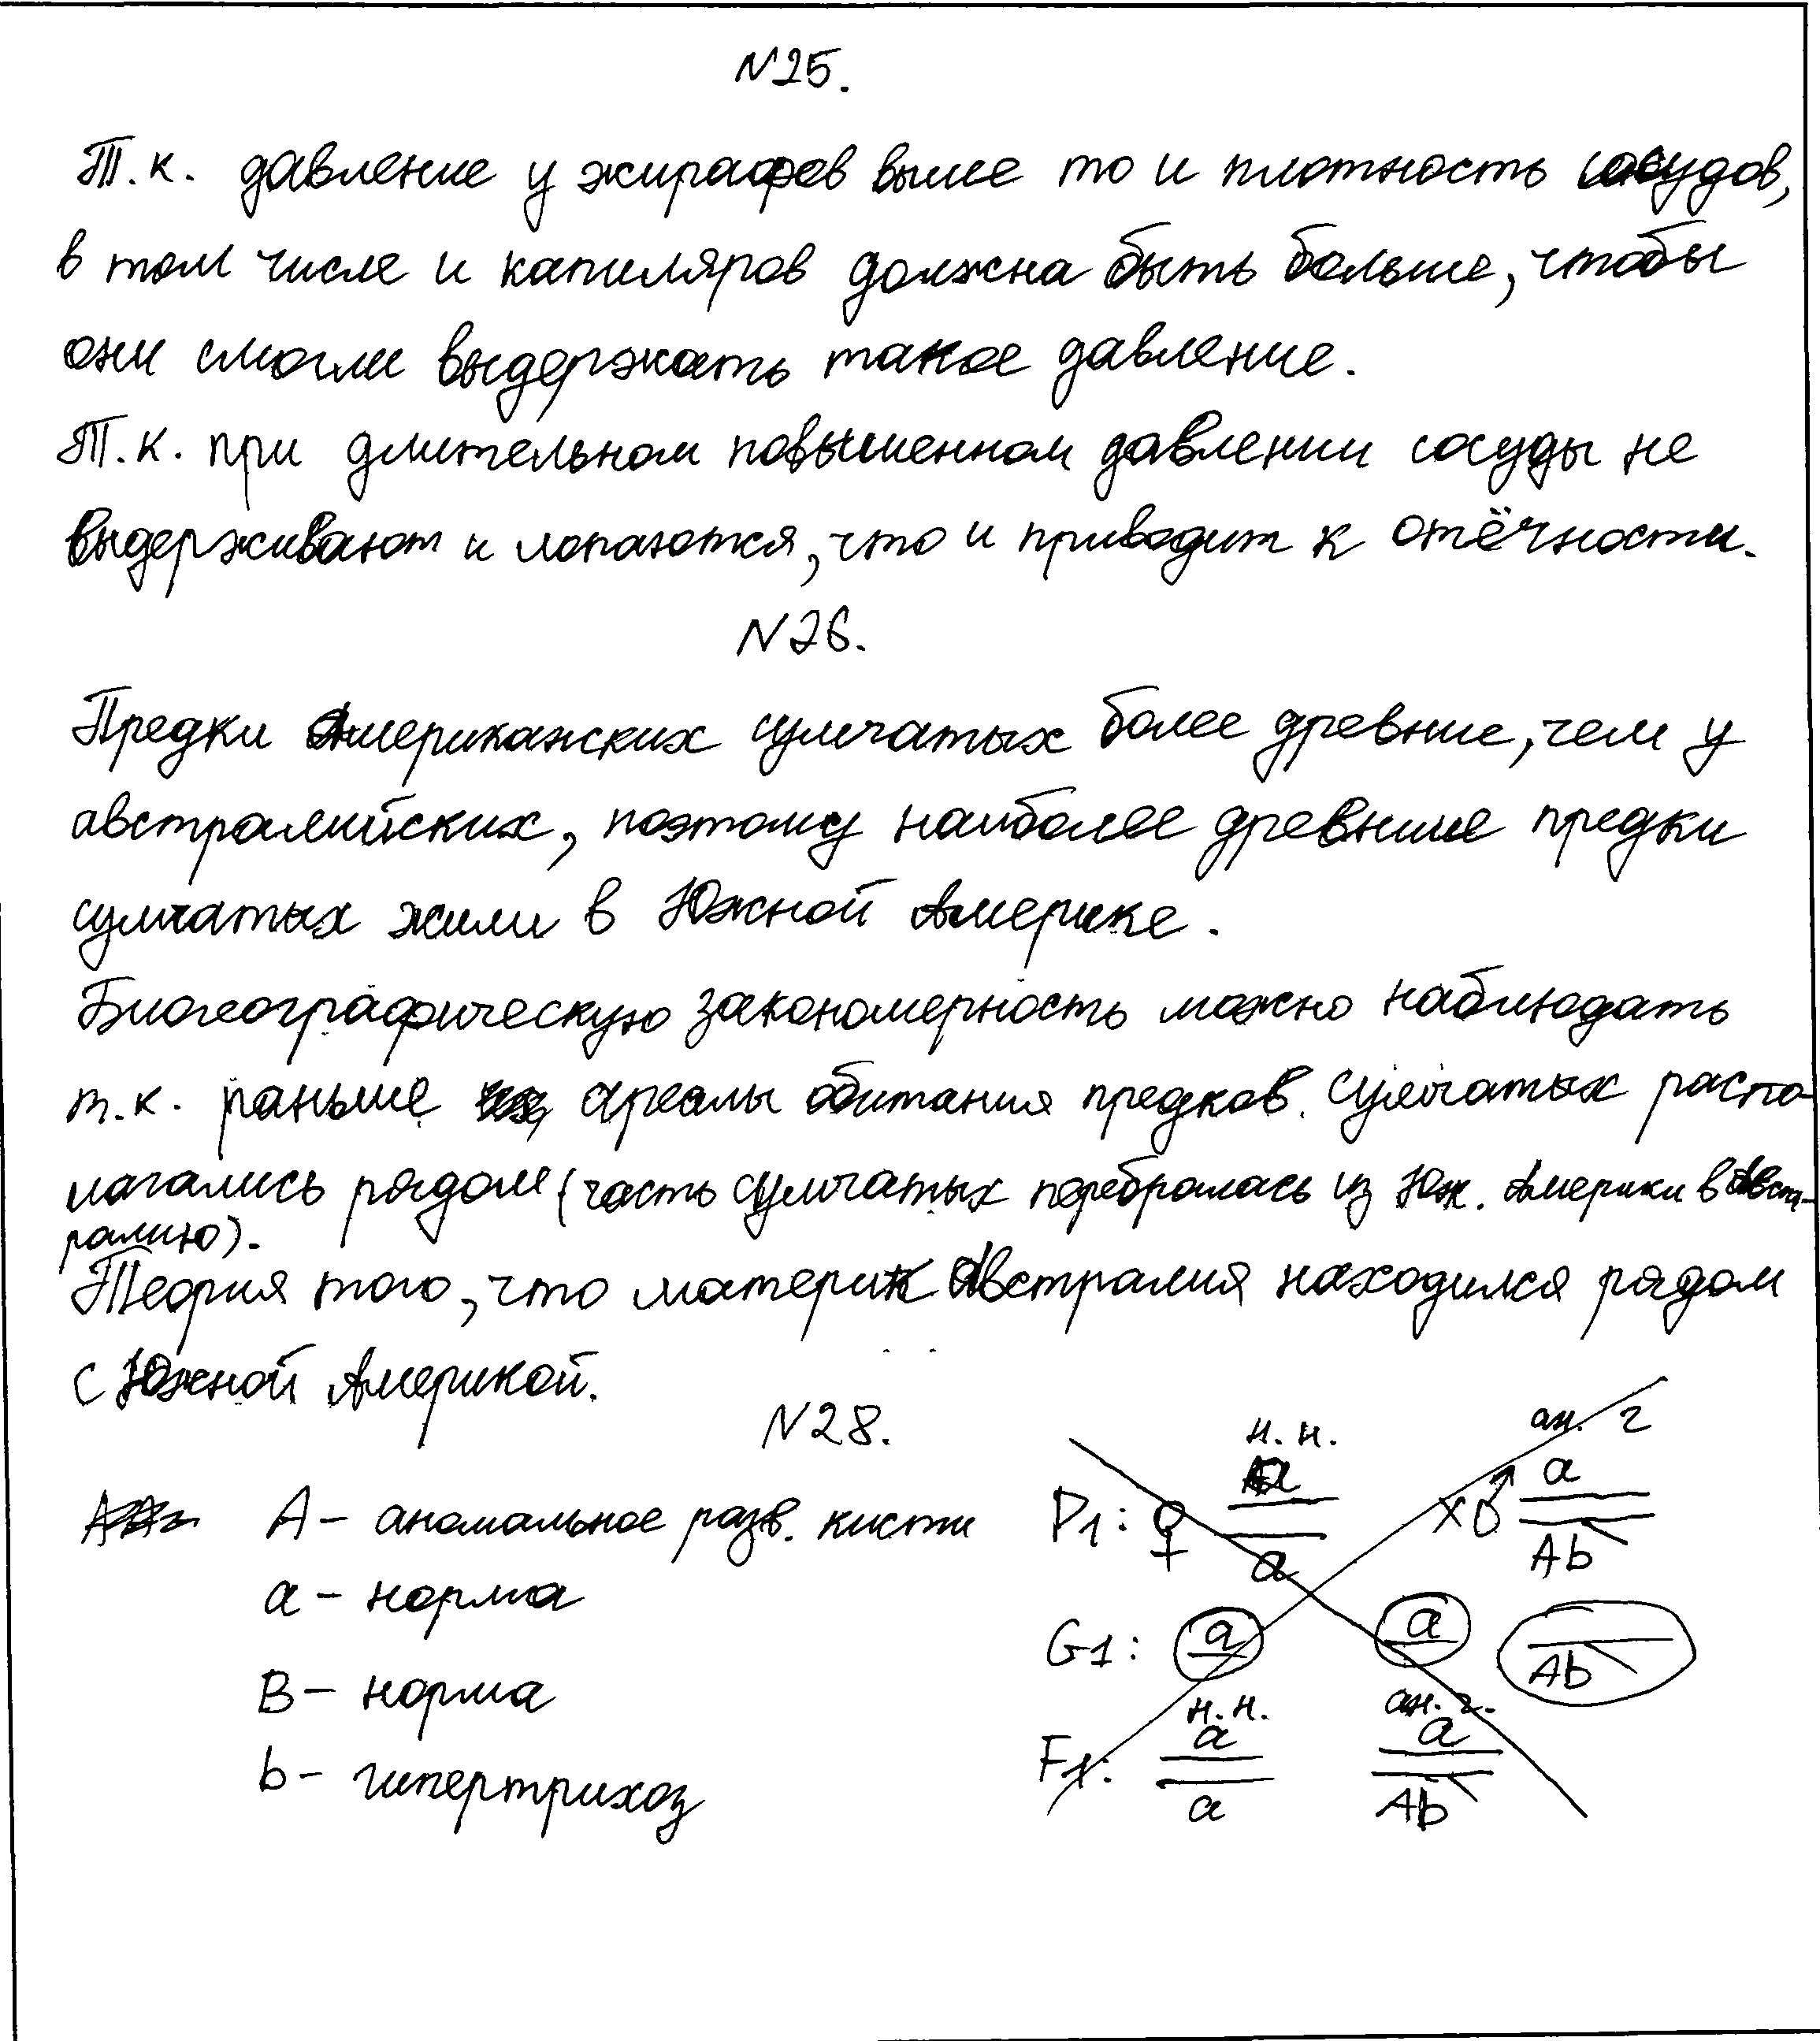 N25.
Т.к. давление у жирафов выше то и плотность сосудов,
в том числе и капиляров должна быть больше, чтобы
они смогли выдержать такое давление.
Т.к. при длительном повышенном давлении сосуды не
выдерживают и лопаются, что и приводит к отёчности.
N26.
Предки Американских сумчатых более древние, чем у
австралийских, поэтому наиболее древние предки
сумчатых жили в Южной Америке.
Биогеографическую закономерность можно наблюдать
т.к. раньше ареалы обитания предков сумчатых распо-
лагались рядом (часть сумчатых перебралась из Юж. Америки в Авст-
ралию).
Теория того, что материк Австралия находился рядом
с Южной Америкой.
N28.
А – аномальное разв. кисти
а – норма
В – норма
b – гипертрихоз
н.н. ан. г
P1: ♀ a x ♂ a
Ab
G1: a a Ab
н.н. ан. г.
F1: a a
a Ab